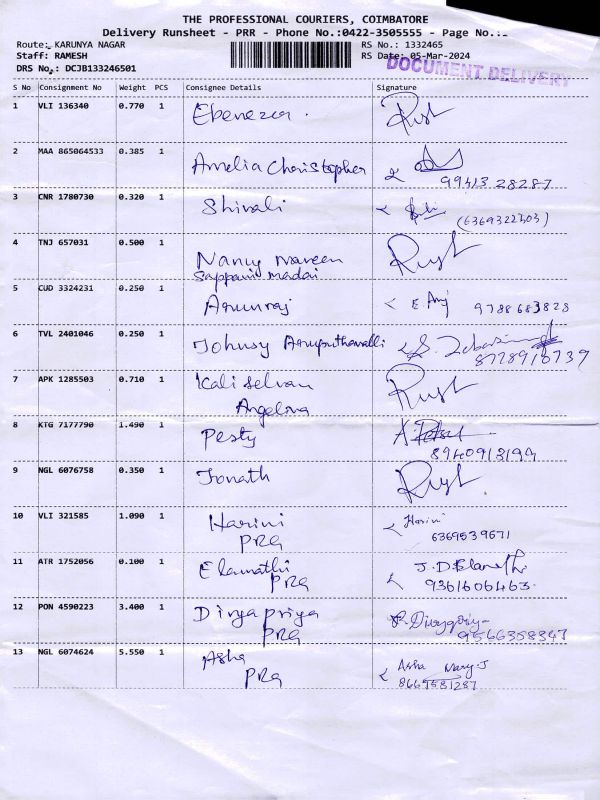 THE PROFESSIONAL COURIERS, COIMBATORE
Delivery Runsheet - PRR - Phone No.:0422-3505555 - Page No.:
Route: KARUNYA NAGAR RS No.: 1332465
Staff: RAMESH RS Date: 05-Mar-2024
DRS No.: DCJB133246501 DOCUMENT DELIVERY
S No Consignment No Weight PCS Consignee Details Signature
1 VLI 136340 0.770 1 Ebenezer
2 MAA 865064533 0.385 1 Amelia Christopher
99413 28287
3 CNR 1780730 0.320 1 Shivali
(6369322303)
4 TNJ 657031 0.500 1 Nancy Naveen
Sappani madai
5 CUD 3324231 0.250 1 Arunraj 9788683828
6 TVL 2401046 0.250 1 Johnsy Aruputhavalli
8728910739
7 APK 1285503 0.710 1 Kaliselvan
Angelona
8 KTG 7177790 1.490 1 Pesty
9 NGL 6076758 0.350 1 Jonath
10 VLI 321585 1.090 1 Harini Harini
PRG 6369539671
11 ATR 1752056 0.100 1 Elamathi
PRG 9361606463
12 PON 4590223 3.400 1 Divyapriya
PRG 9566358347
13 NGL 6074624 5.550 1 Asha Asha Mary J
PRG 8669581287